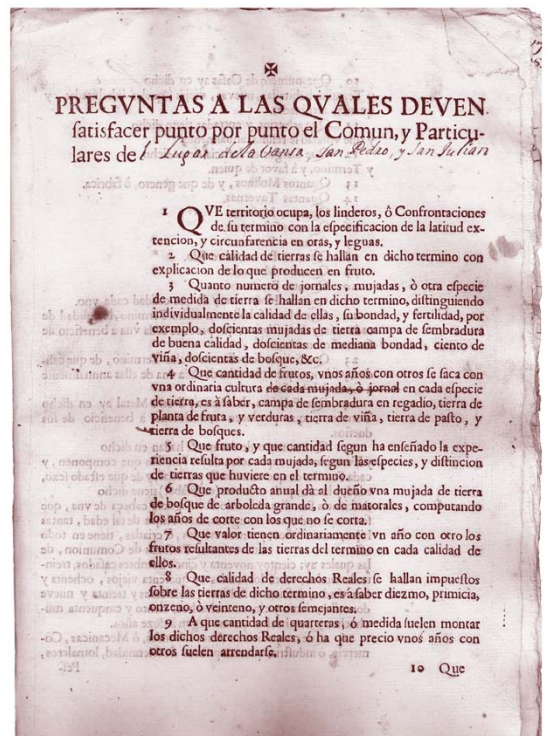 PREGVNTAS A LAS QVALES DEVEN
satisfacer punto por punto el Comun, y Particu-
lares de l Lugar de la Vansa, San Pedro, y San Julian
1 QVE territorio ocupa, los linderos, ò Confrontaciones
de su termino con la especificacion de la latitud ex-
tencion, y circunfarencia en oras, y leguas.
2 Que calidad de tierras se hallan en dicho termino con
explicacion de lo que producen en fruto.
3 Quanto numero de jornales, mujadas, ò otra especie
de medida de tierra se hallan en dicho termino, distinguiendo
individualmente la calidad de ellas, su bondad, y fertilidad, por
exemplo, doscientas mujadas de tierra campa de sembradura
de buena calidad, doscientas de mediana bondad, ciento de
viña, doscientas de bosque, &c.
4 Que cantidad de frutos, vnos años con otros se saca con
vna ordinaria cultura de cada mujada, ò jornal en cada especie
de tierra, es à saber, campa de sembradura en regadio, tierra de
planta de fruta, y verduras, tierra de viña, tierra de pasto, y
tierra de bosques.
5 Que fruto, y que cantidad segun ha enseñado la expe-
riencia resulta por cada mujada, segun las especies, y distincion
de tierras que huviere en el termino.
6 Que producto anual dà al dueño vna mujada de tierra
de bosque de arboleda grande, ò de matorales, computando
los años de corte con los que no se corta.
7 Que valor tienen ordinariamente vn año con otro los
frutos resultantes de las tierras del termino en cada calidad de
ellos.
8 Que calidad de derechos Reales se hallan impuestos
sobre las tierras de dicho termino, es à saber diezmo, primicia,
onzeno, ò veinteno, y otros semejantes.
9 A que cantidad de quarteras, ò medida suelen montar
los dichos derechos Reales, ò ha que precio vnos años con
otros suelen arrendarse.
10 Que